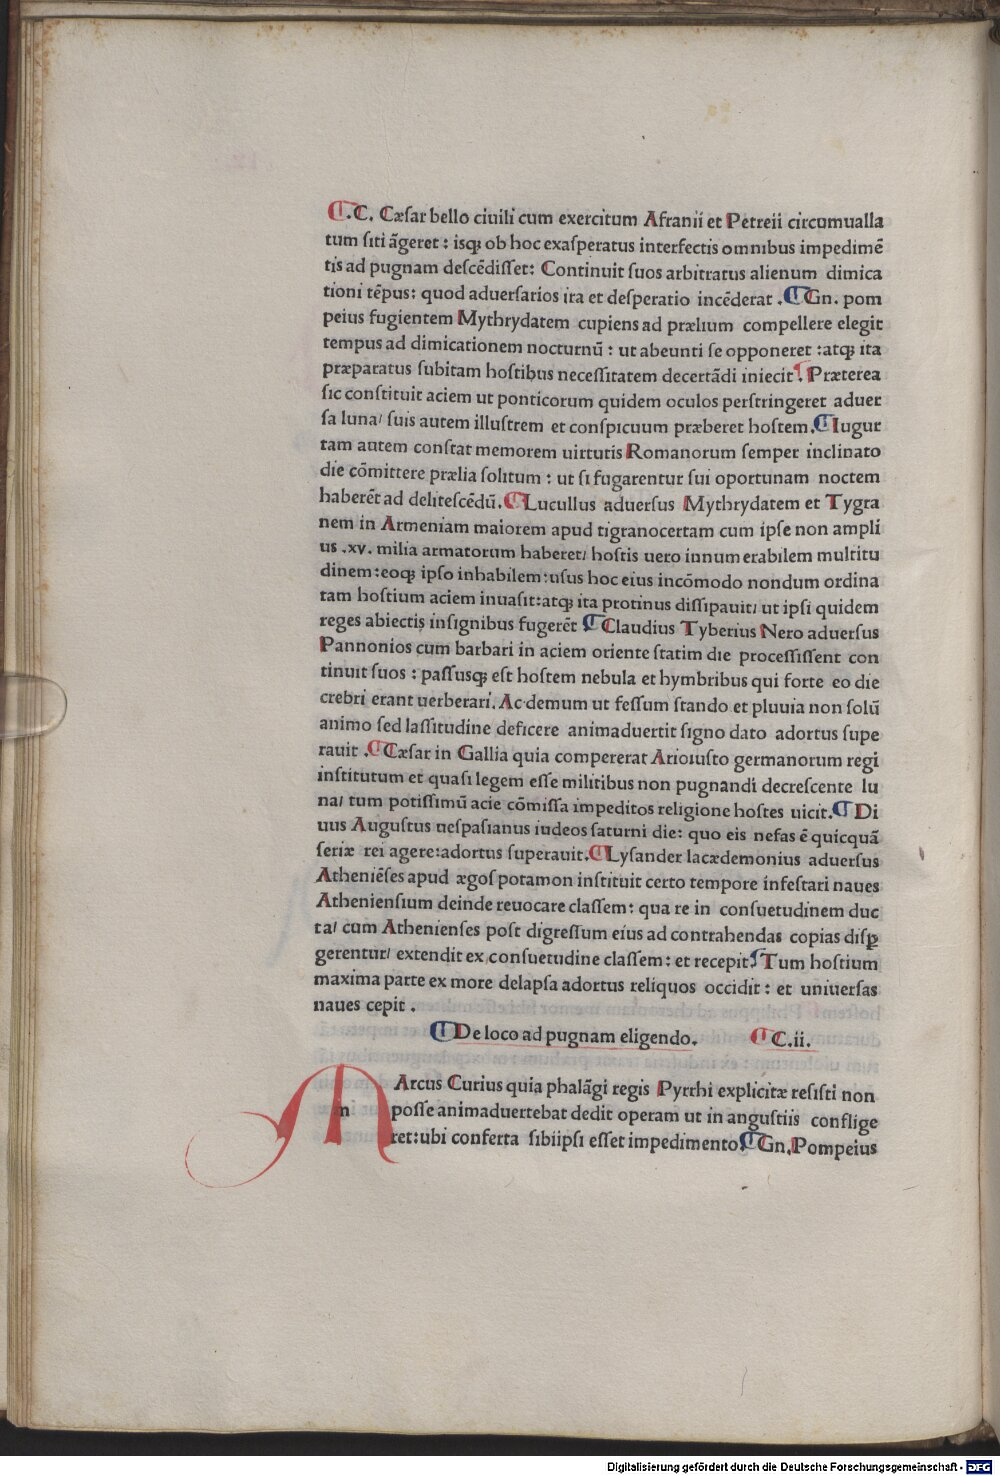 .C. Cæſar bello ciuili cum exercitum Afranii et Petreii circumualla
tum ſiti āgeret : isqꝫ ob hoc exaſperatus interfectis omnibus impedimē
tis ad pugnam deſcēdiſſet: Continuit ſuos arbitratus alienum dimica
tioni tēpus: quod aduerſarios ira et deſperatio incēderat . Gn. pom
peius fugientem Mythrydatem cupiens ad prælium compellere elegit
tempus ad dimicationem nocturnū : ut abeunti ſe opponeret :atqꝫ ita
præparatus ſubitam hoſtibus neceſſitatem decertādi iniecit. Præterea
ſic conſtituit aciem ut ponticorum quidem oculos perſtringeret aduer
ſa luna/ ſuis autem illuſtrem et conſpicuum præberet hoſtem. Iugur
tam autem conſtat memorem uirtutis Romanorum ſemper inclinato
die cōmittere prælia ſolitum : ut ſi fugarentur ſui oportunam noctem
haberēt ad deliteſcēdū. Lucullus aduerſus Mythrydatem et Tygra
nem in Armeniam maiorem apud tigranocertam cum ipſe non ampli
us .xv. milia armatorum haberet/ hoſtis uero innumerabilem multitu
dinem:eoqꝫ ipſo inhabilem:uſus hoc eius incōmodo nondum ordina
tam hoſtium aciem inuaſit:atqꝫ ita protinus diſſipauit/ ut ipſi quidem
reges abiectis inſignibus fugerēt Claudius Tyberius Nero aduerſus
Pannonios cum barbari in aciem oriente ſtatim die proceſſiſſent con
tinuit ſuos : paſſusqꝫ eſt hoſtem nebula et hymbribus qui forte eo die
crebri erant uerberari. Ac demum ut feſſum ſtando et pluuia non ſolū
animo ſed laſſitudine deficere animaduertit ſigno dato adortus ſupe
rauit . Cæſar in Gallia quia compererat Arioiuſto germanorum regi
inſtitutum et quaſi legem eſſe militibus non pugnandi decreſcente lu
na/ tum potiſſimū acie cōmiſſa impeditos religione hoſtes uicit. Di
uus Auguſtus ueſpaſianus iudeos ſaturni die: quo eis nefas ē quicquā
ſeriæ rei agere:adortus ſuperauit. Lyſander lacædemonius aduerſus
Atheniēſes apud ægoſpotamon inſtituit certo tempore infeſtari naues
Athenienſium deinde reuocare claſſem: qua re in conſuetudinem duc
ta/ cum Athenienſes poſt digreſſum eius ad contrahendas copias diſꝑ
gerentur/ extendit ex conſuetudine claſſem: et recepit Tum hoſtium
maxima parte ex more delapſa adortus reliquos occidit : et uniuerſas
naues cepit .
De loco ad pugnam eligendo. C.ii.
MArcus Curius quia phalāgi regis Pyrrhi explicitæ reſiſti non
poſſe animaduertebat dedit operam ut in anguſtiis conflige
ret:ubi conferta ſibiipſi eſſet impedimento. Gn. Pompeius
Digitalisierung gefördert durch die Deutsche Forschungsgemeinschaft - DFG